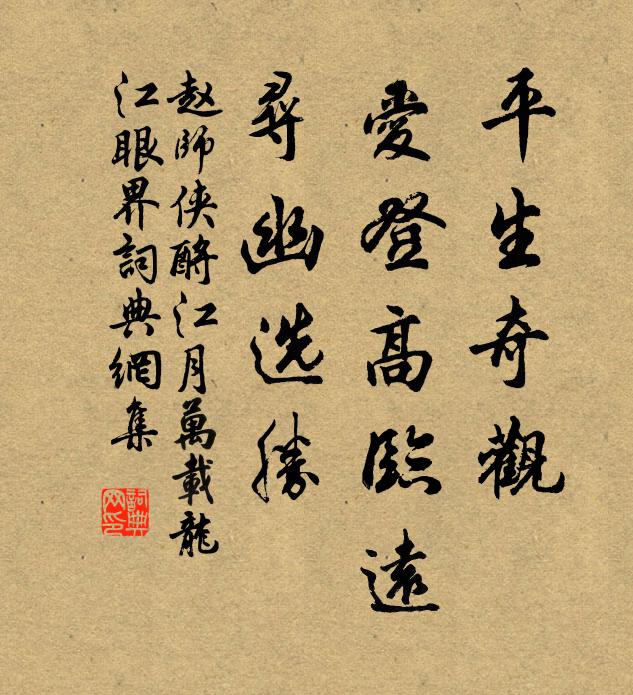 平生奇觀
愛登高臨遠
尋幽选勝
赵師侠酹江月萬載龍
江眼界詞典網集
詞典
网印